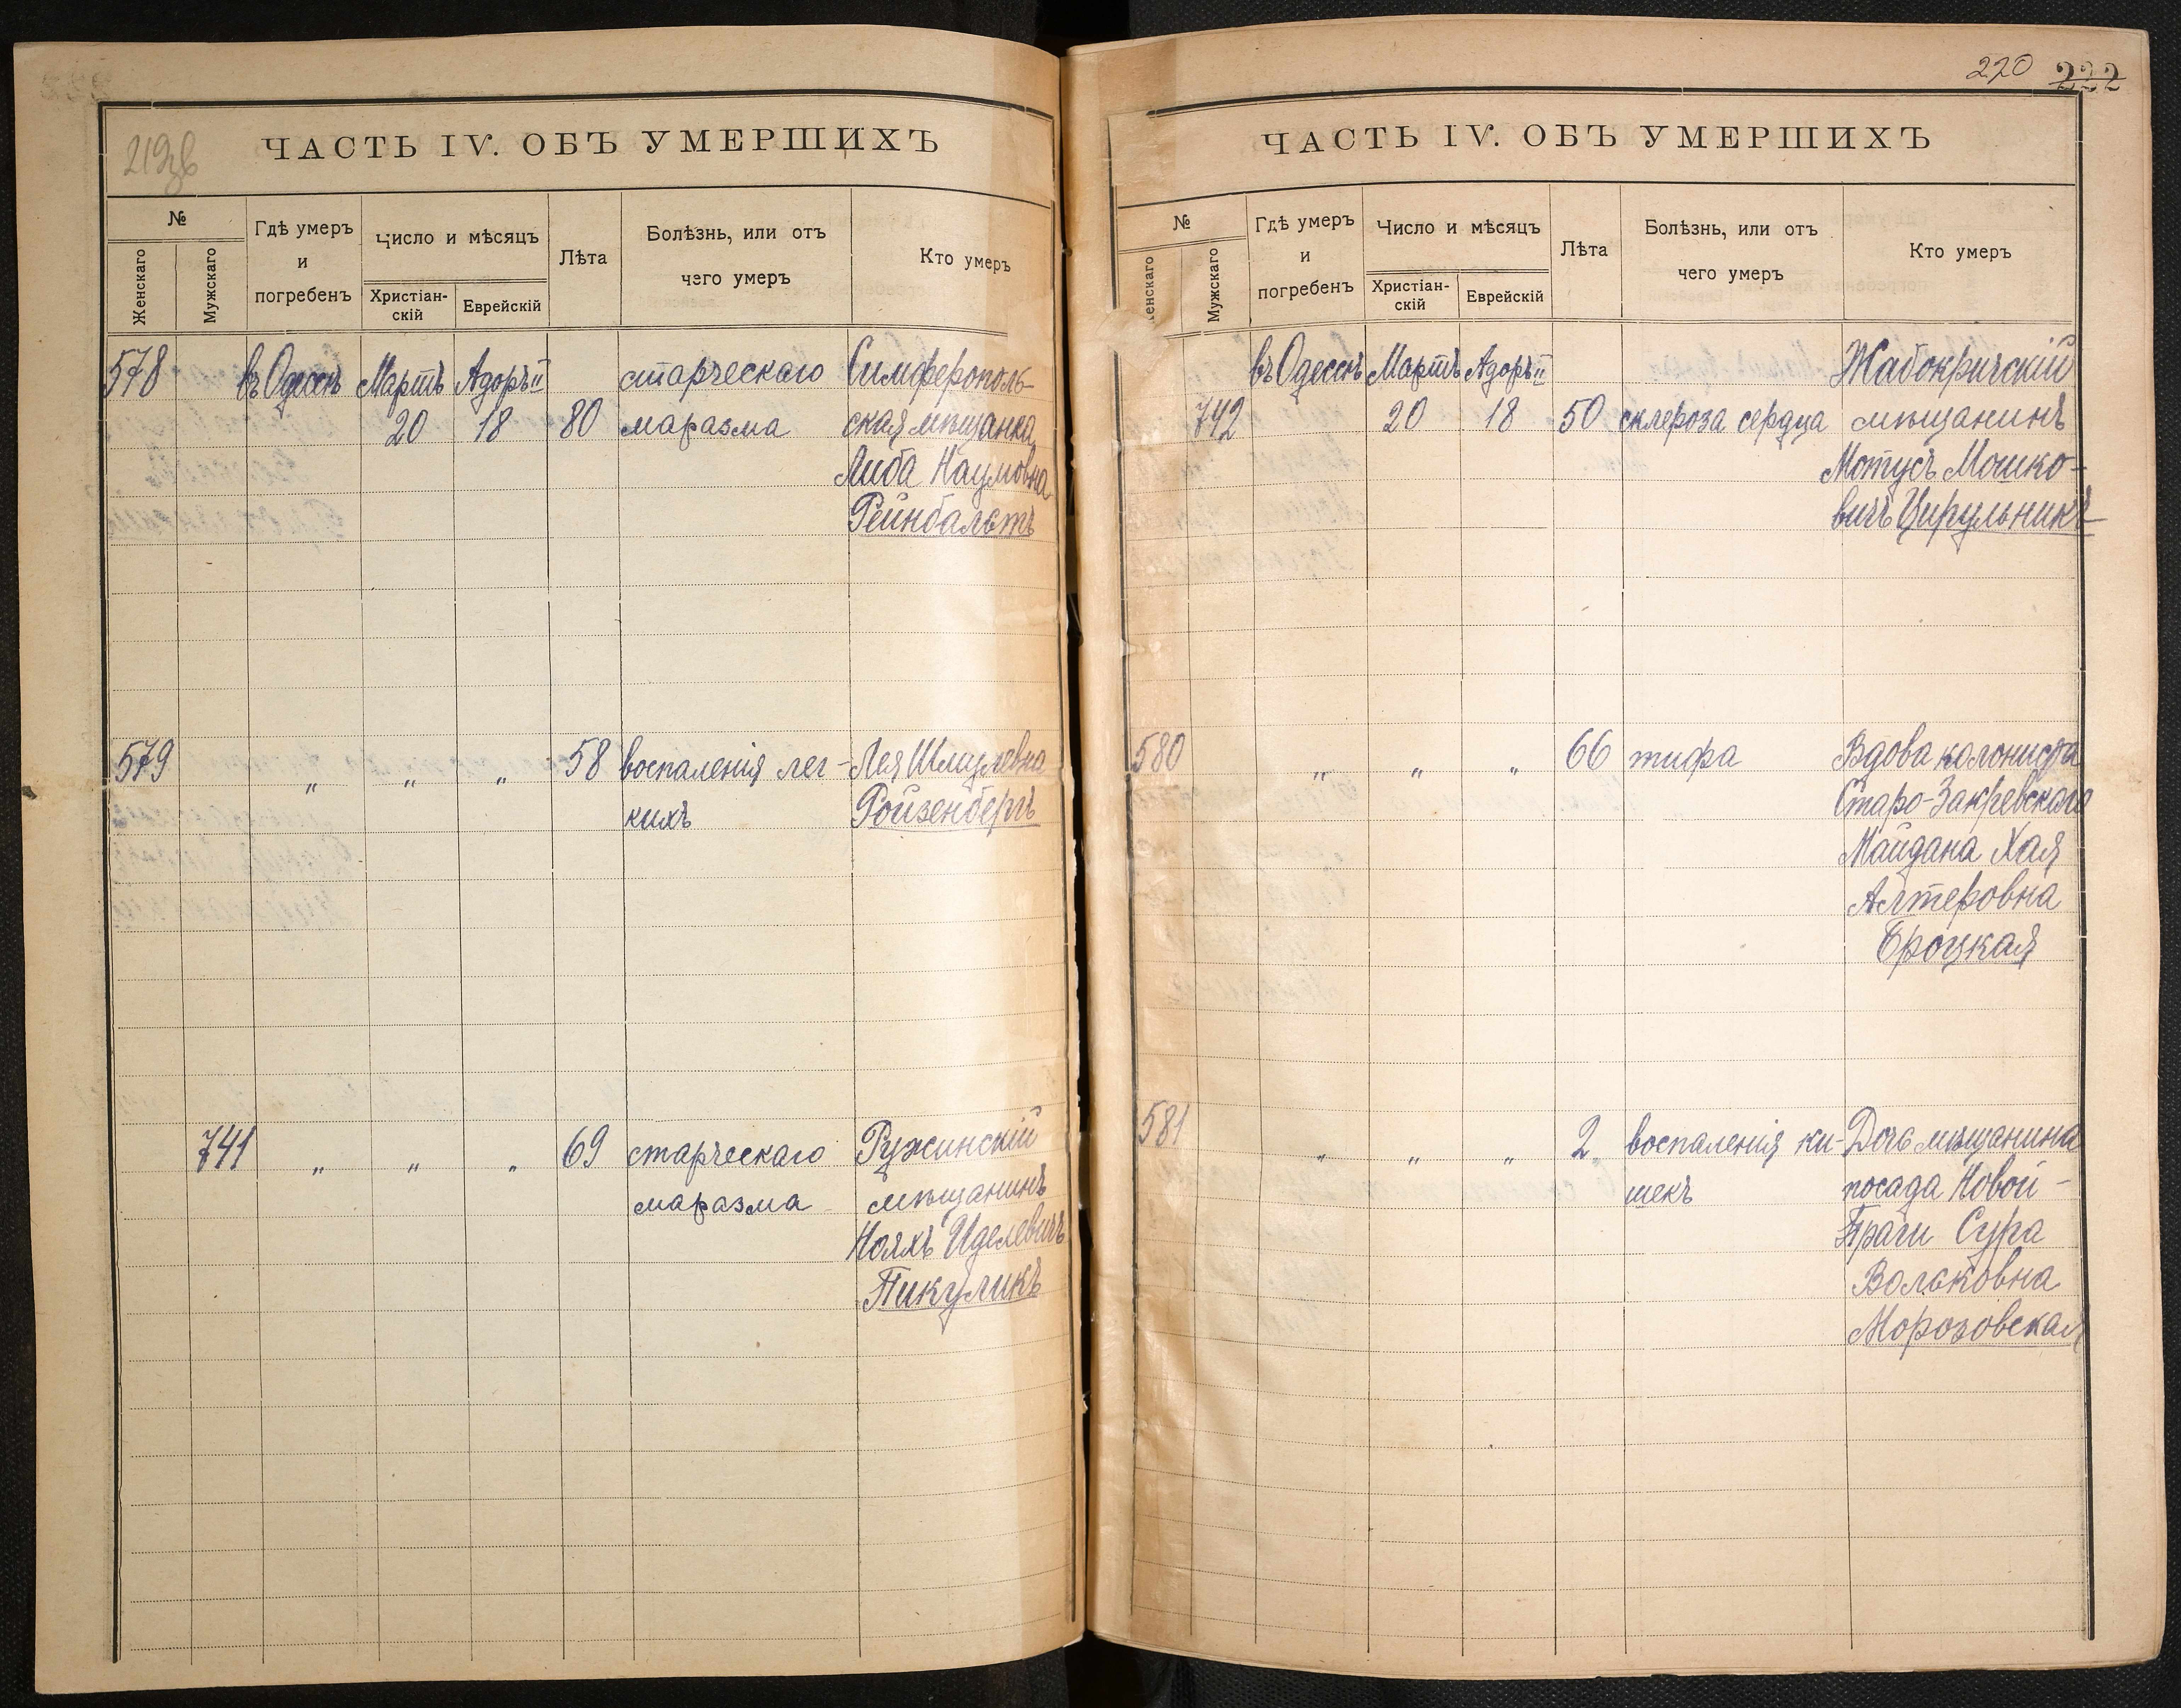 219зв
ЧАСТЬ IV. ОБЪ УМЕРШИХЪ
№
Женскаго
Мужскаго
Гдѣ умеръ
и
погребенъ
Число и мѣсяцъ
Христіан-
скій
Еврейскій
Лѣта
Болѣзнь, или отъ
чего умеръ
Кто умеръ
578 въ Одессѣ Мартъ Адоръ II старческаго Симферополь-
20 18 80 маразма ская мѣщанка
Либа Наумовна
Рейнбальтъ
579 " " " 58 воспаленія лег- Лея Шмулевна
кихъ Ройзенбергъ
741 " " " 69 старческаго Ружинскій
маразма мѣщанинъ
Нояхъ Иделевичъ
Пикуликъ
220 222
ЧАСТЬ IV. ОБЪ УМЕРШИХЪ
№
енскаго
Мужскаго
Гдѣ умеръ
и
погребенъ
Число и мѣсяцъ
Христіан-
скій
Еврейскій
Лѣта
Болѣзнь, или отъ
чего умеръ
Кто умеръ
въ Одессѣ Мартъ Адоръ II Жабокричскій
742 20 18 50 склероза сердца мѣщанинъ
Мотусъ Мошко-
вичъ Цирульникъ
580 " " " 66 тифа Вдова колониста
Старо-Закревскаго
Майдана Хая
Алтеровна
Броцкая
581 " " " 2 воспаленія ки- Дочь мѣщанина
шекъ посада Новой-
Праги Сура
Вольковна
Морозовская